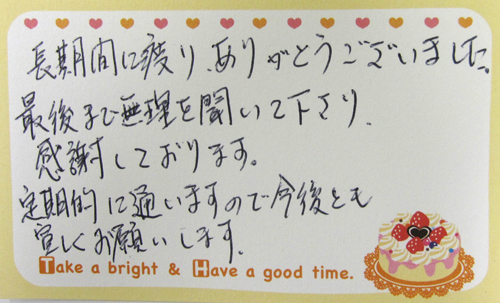 長期間に疲り、ありがとうございました。
最後まで無理を聞いて下さり、
感謝しております。
定期的に通いますので今後とも
宜しくお願いします。
Take a bright & Have a good time.